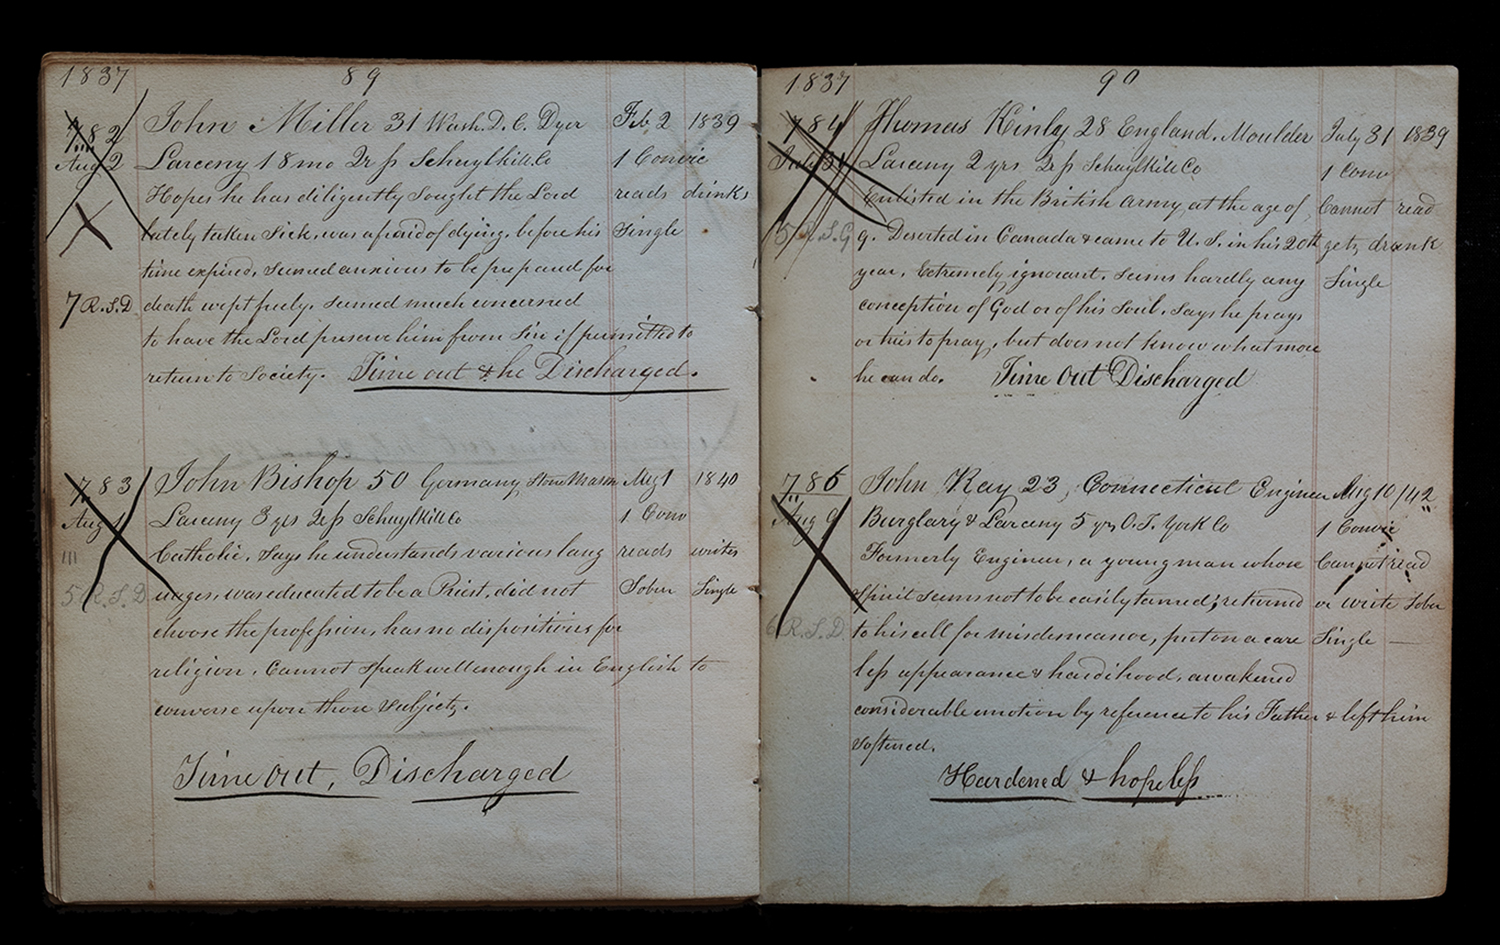 1837 89
782 John Miller 31 Wash. D. C. Dyer Feb 2 1839
Aug 2 Larceny 18 mo 2r ps Schuylkill Co 1 Convic
Hopes he has diligently sought the Lord reads drinks
lately taken Sick, was afraid of dying, before his Single
time expired, Seemed anxious to be prepared for
7 R.S.D. death wept freely. Seemed much concerned
to have the Lord preserve him from Sin if permitted to
return to Society. Time out & he Discharged.
783 John Bishop 50 Germany Stone Mason Aug 1 1840
Aug 1 Larceny 3 yrs 2e ps Schuylkill Co 1 Conv
111 Catholic. Says he understands various lang reads writes
5 R.S.D uages, was educated to be a Priest, did not Sober Single
choose the profession, has no dispositions for
religion. Cannot Speak well enough in English to
converse upon those Subjects.
Time out, Discharged
1837 90
784 Thomas Kinly 28 England. Moulder July 31 1839
July 31 Larceny 2 yrs 2e ps Schuylkill Co 1 Conv
Enlisted in the British Army at the age of Cannot read
5 R.S.G 9. Deserted in Canada & came to U. S. in his 20th gets drunk
year. Extremely ignorant. Seems hardly any Single
conception of God or of his Soul. Says he prays
or tries to pray, but does not know what more
he can do. Time Out Discharged
786 John Kay 23, Connecticut Engineer Aug 10 /42
Aug 9 Burglary & Larceny 5 yrs O.T. York Co 1 Convic
Formerly Engineer, a young man whose Cannot read
Spirit Seems not to be easily tamed; returned or write Sober
6 R.S.D. to his cell for misdemeanor, put on a care Single —
less appearance & hardihood, awakened
considerable emotion by reference to his Father & left him
Softened.
Hardened & hopeless